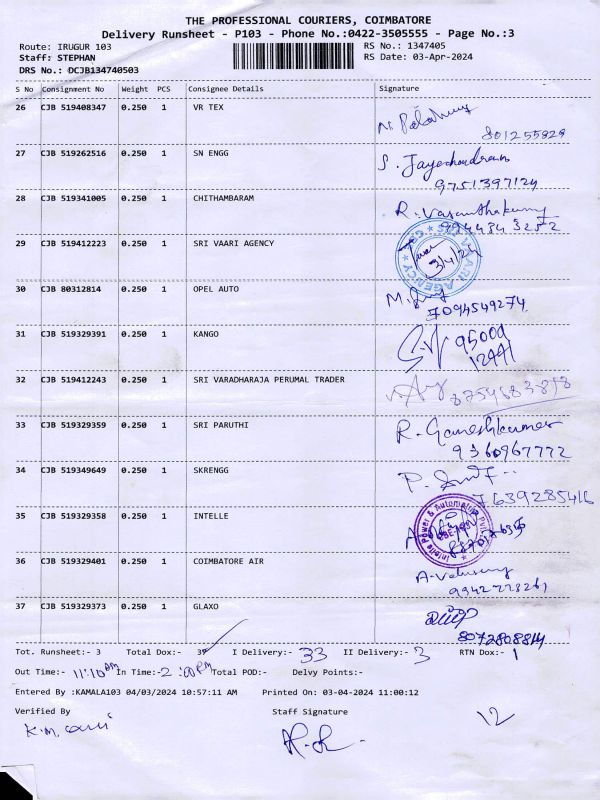 THE PROFESSIONAL COURIERS, COIMBATORE
Delivery Runsheet - P103 - Phone No.:0422-3505555 - Page No.:3
Route: IRUGUR 103 RS No.: 1347405
Staff: STEPHAN RS Date: 03-Apr-2024
DRS No.: DCJB134740503
S No Consignment No Weight PCS Consignee Details Signature
26 CJB 519408347 0.250 1 VR TEX
27 CJB 519262516 0.250 1 SN ENGG S. Jayachandran
9751397124
28 CJB 519341005 0.250 1 CHITHAMBARAM R. Vasanthakumar
29 CJB 519412223 0.250 1 SRI VAARI AGENCY 3/4/24
30 CJB 80312814 0.250 1 OPEL AUTO
7094549274
31 CJB 519329391 0.250 1 KANGO 95000
12441
32 CJB 519412243 0.250 1 SRI VARADHARAJA PERUMAL TRADER
33 CJB 519329359 0.250 1 SRI PARUTHI R. Ganeshkumar
9360967772
34 CJB 519349649 0.250 1 SKRENGG
7639285416
35 CJB 519329358 0.250 1 INTELLE
36 CJB 519329401 0.250 1 COIMBATORE AIR
37 CJB 519329373 0.250 1 GLAXO
8072808814
Tot. Runsheet:- 3 Total Dox:- 37 I Delivery:- 33 II Delivery:- 3 RTN Dox:- 1
Out Time:- 11:10 AM In Time:- 2:00 PM Total POD:- Delvy Points:-
Entered By :KAMALA103 04/03/2024 10:57:11 AM Printed On: 03-04-2024 11:00:12
Verified By Staff Signature 12